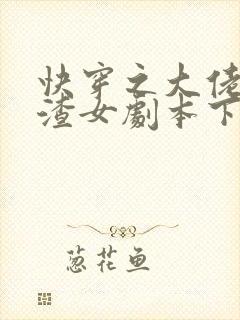 快穿之大佬
渣女剧本下
葱花鱼